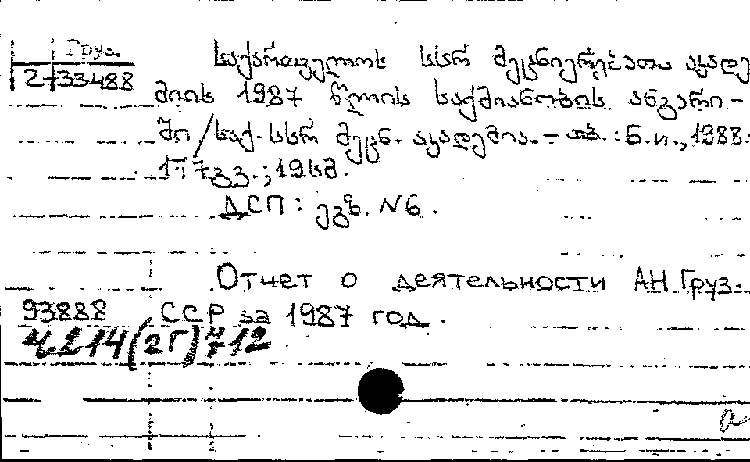 Груз.
2-33488
საქართველოს სსრ მეცნიერებათა აკადე
მიის 1987 წლის საქმიანობის ანგარი-
ში / საქ. სსრ მეცნ. აკადემია. - თბ. : Б.и., 1988.
177 გვ. ; 19სმ.
ДСП : ეგზ. N6.
Отчет о деятельности АН Груз.
93888 ССР за 1987 год.
4214(2Г)712
a